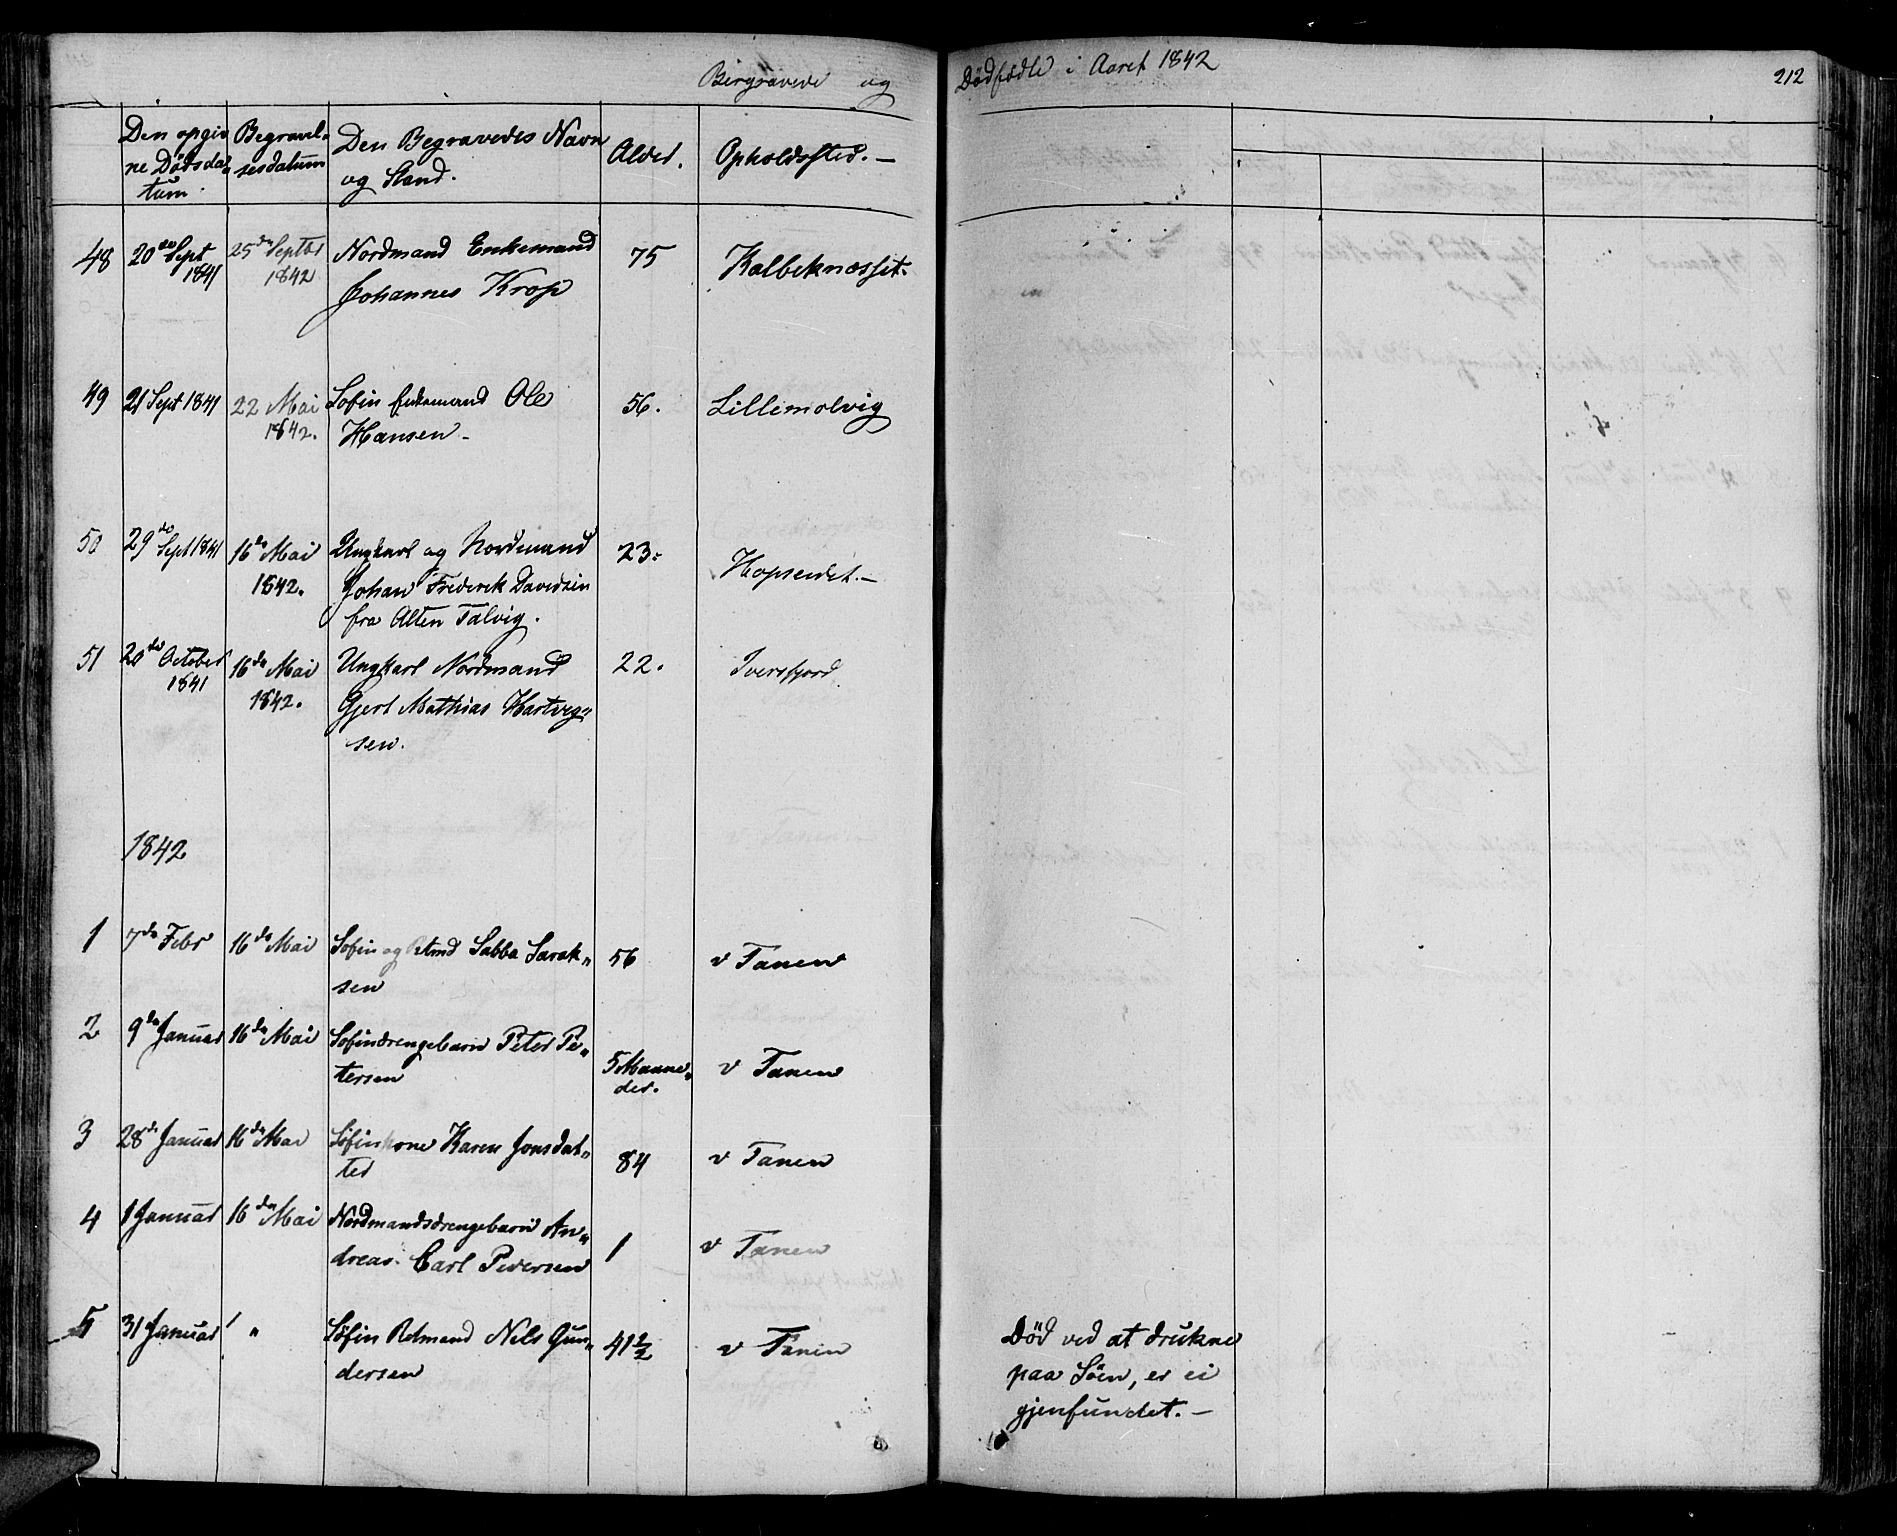 Bergravede og Dødfødte i Aaret 1842
212
Den opgiv
ne Dødsda„
tum.
Begravel„
sesdatum
Den Begravedes Navn
og Stand.
Alder.
Opholdssted.—
48 20de Sept 1841 25de Septbr 1842 Nordmand Enkemand
Johannes Krop 75 Kalbeknæsset.
49 21 Sept 1841 22 Mai 1842. Søfin Enkemand Ole
Hansen 56. Lillemolvig
50 29de Sept 1841 16de Mai 1842. Ungkarl og Nordmand
Johan Frederik Davidsen
fra Alten Talvig. 23. Hopseidet.—
51 20de October 1841 16de Mai 1842. Ungkarl Nordmand
Gjert Mathias Hartvig„
sen. 22. Iversfjord
1842
1 7de Febr 16de Mai Søfin og Retmd Sabba Sarak„
sen 56 v Tanen
2 9de Januar 16de Mai Søfindrengebarn Peter Pe„
tersen 5 Maane„
der. v Tanen
3 28de Januar 16de Mai Søfinkone Karen Jonsdat„
ter 84 v Tanen
4 1 Januar 16de Mai Nordmandsdrengebarn An„
dreas Carl Pedersen 1 v Tanen
5 31 Januar „ Søfin Retmand Nils Gun„
dersen 41 1/2 v Tanen
Død ved at drukne
paa Søen, er ei
gjenfundet.—